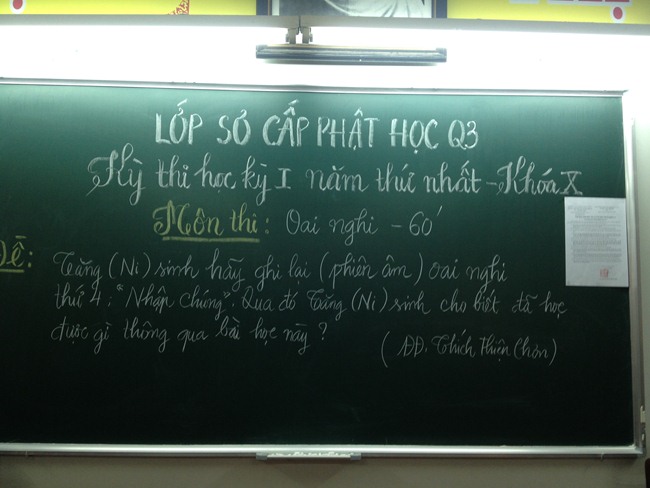 LỚP SƠ CẤP PHẬT HỌC Q3
Kỳ thi học kỳ I năm thứ nhất - Khóa X
Môn thi: Oai nghi - 60'
Đề: Tăng (Ni) sinh hãy ghi lại (phiên âm) oai nghi
thứ 4: "Nhập Chúng". Qua đó Tăng (Ni) sinh cho biết đã học
được gì thông qua bài học này?
(ĐĐ. Thích Thiện Chơn)